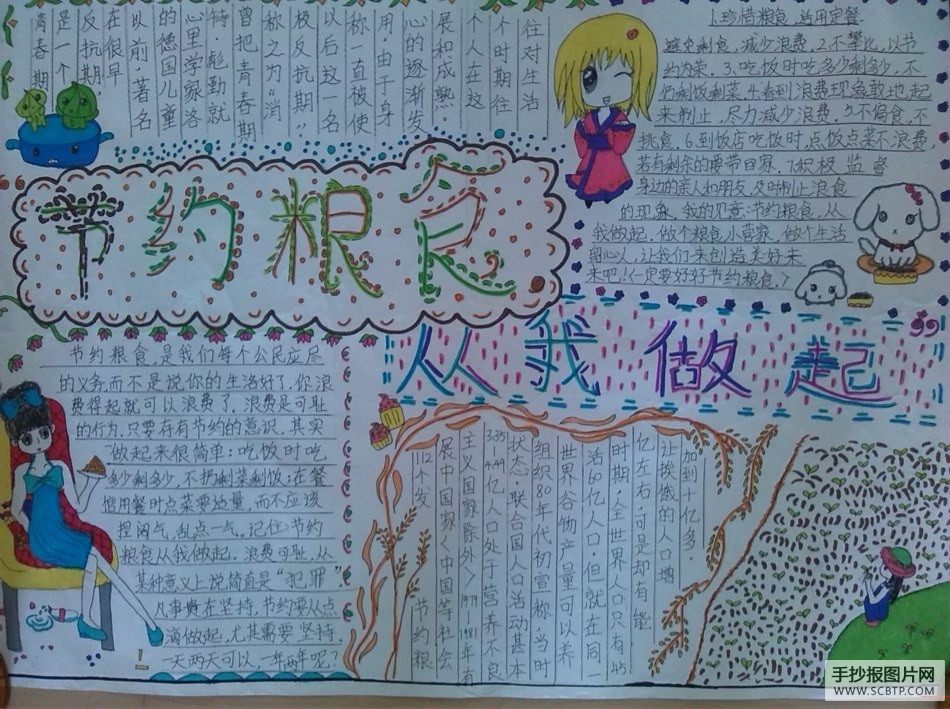 青春期
是一个
反抗期,
在很早
以前,著名
的德国儿童
心里学家洛
特·彪勒就
曾把青春期
称之为“消
极反抗期”
以后这一名
称一直被使
用.由于身
心的逐渐发
展和成熟,
个人在这
个时期往
往对生活
1.珍惜粮食,适用定餐.
避免剩食,减少浪费.2.不攀比,以节
约为荣.3.吃饭时吃多少剩多少,不
扔剩饭剩菜.4.看到浪费现象敢地起
来制止,尽力减少浪费.5.不偏食,不
挑食.6.到饭店吃饭时,点饭点菜不浪费,
若有剩余的要带回家.7.积极监督
身边的亲人和朋友,及时制止浪食
的现象.我的见意:节约粮食,从
我做起,做个粮食小管家,做个生活
留心人,让我们来创造美好未
来吧!(一定要好好节约粮食.)
节约粮食
从我做起
节约粮食,是我们每个公民应尽
的义务,而不是说你的生活好了,你浪
费得起就可以浪费了,浪费是可耻
的行为,只要存有节约的意识,其实
做起来很简单:吃饭时吃
多少剩多少,不扔剩菜剩饭;在餐
馆用餐时点菜要适量,而不应该
捏阔气,乱点一气。记住:节约
粮食从我做起,浪费可耻,从
某种意义上说简直是“犯罪”
凡事贵在坚持,节约要从点
滴做起,尤其需要坚持.
一天两天可以,一年两年呢?
112个发 节约粮
展中国家<中国等社会
主义国家除外>1979 1981年有
3.35-4.44亿人口处于营养不良
状态·联合国人口活动甚本
组织80年代初宣称,当时
世界谷物产量可以养
活60亿人口·但就在同一
时期,全世界人口只有45
亿左右,可是却有能
让挨饿的人口增
加到十亿多.
手抄报图片网
WWW.SCBTP.COM